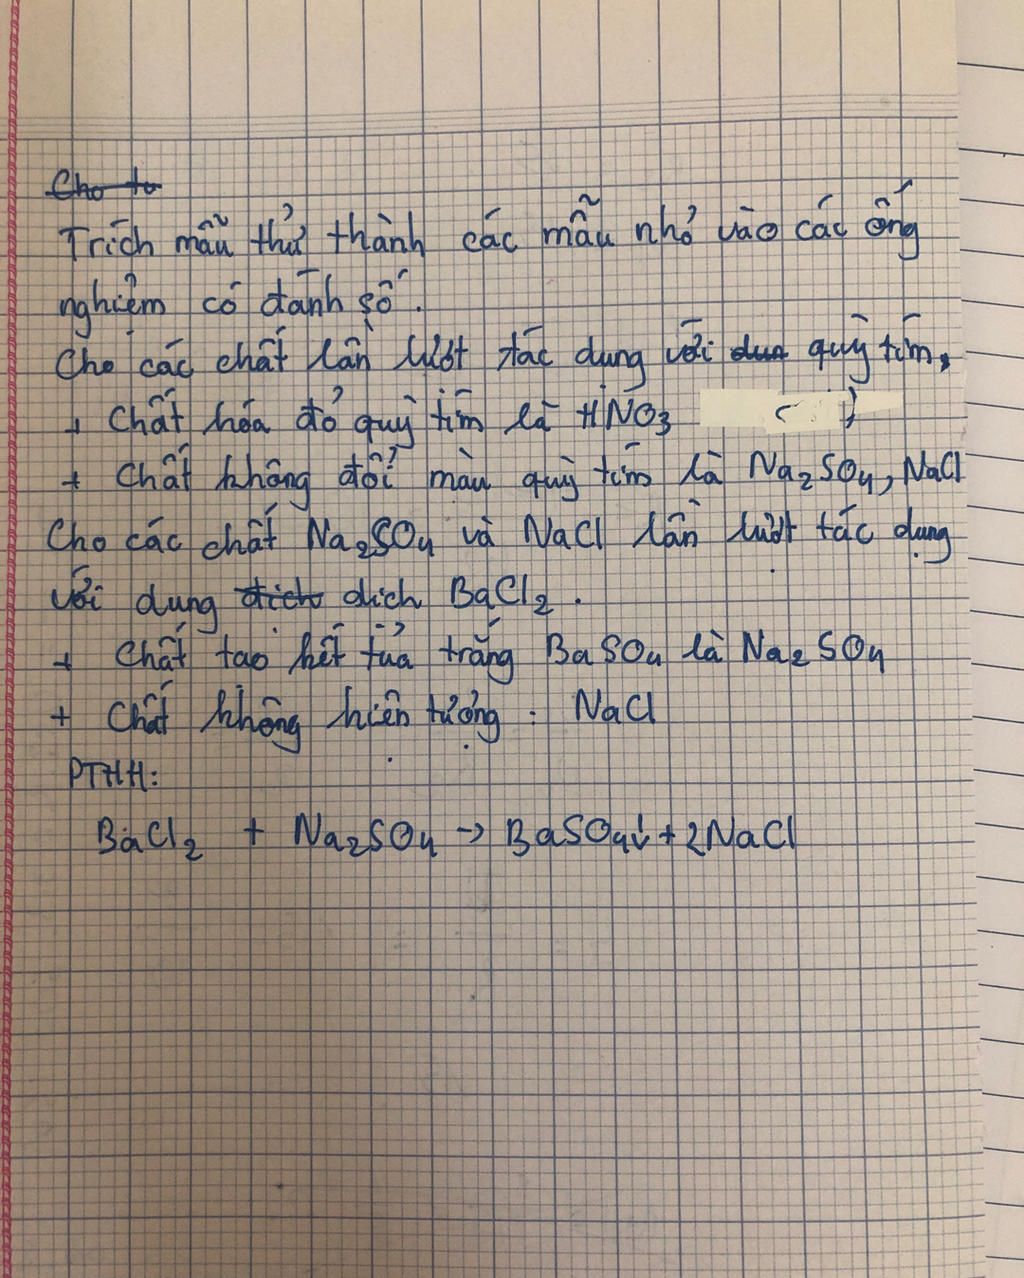 Cho to
Trích mẫu thử thành các mẫu nhỏ vào các ống
nghiệm có đánh số.
Cho các chất lần lượt tác dụng với dun quỳ tím.
+ Chất hóa đỏ quỳ tím là HNO₃
+ Chất không đổi màu quỳ tím là Na₂SO₄, NaCl
Cho các chất Na₂SO₄ và NaCl lần lượt tác dụng
với dung dich dịch BaCl₂.
+ Chất tạo kết tủa trắng BaSO₄ là Na₂SO₄
+ Chất không hiện tượng : NaCl
PTHH:
BaCl₂ + Na₂SO₄ → BaSO₄↓ + 2NaCl